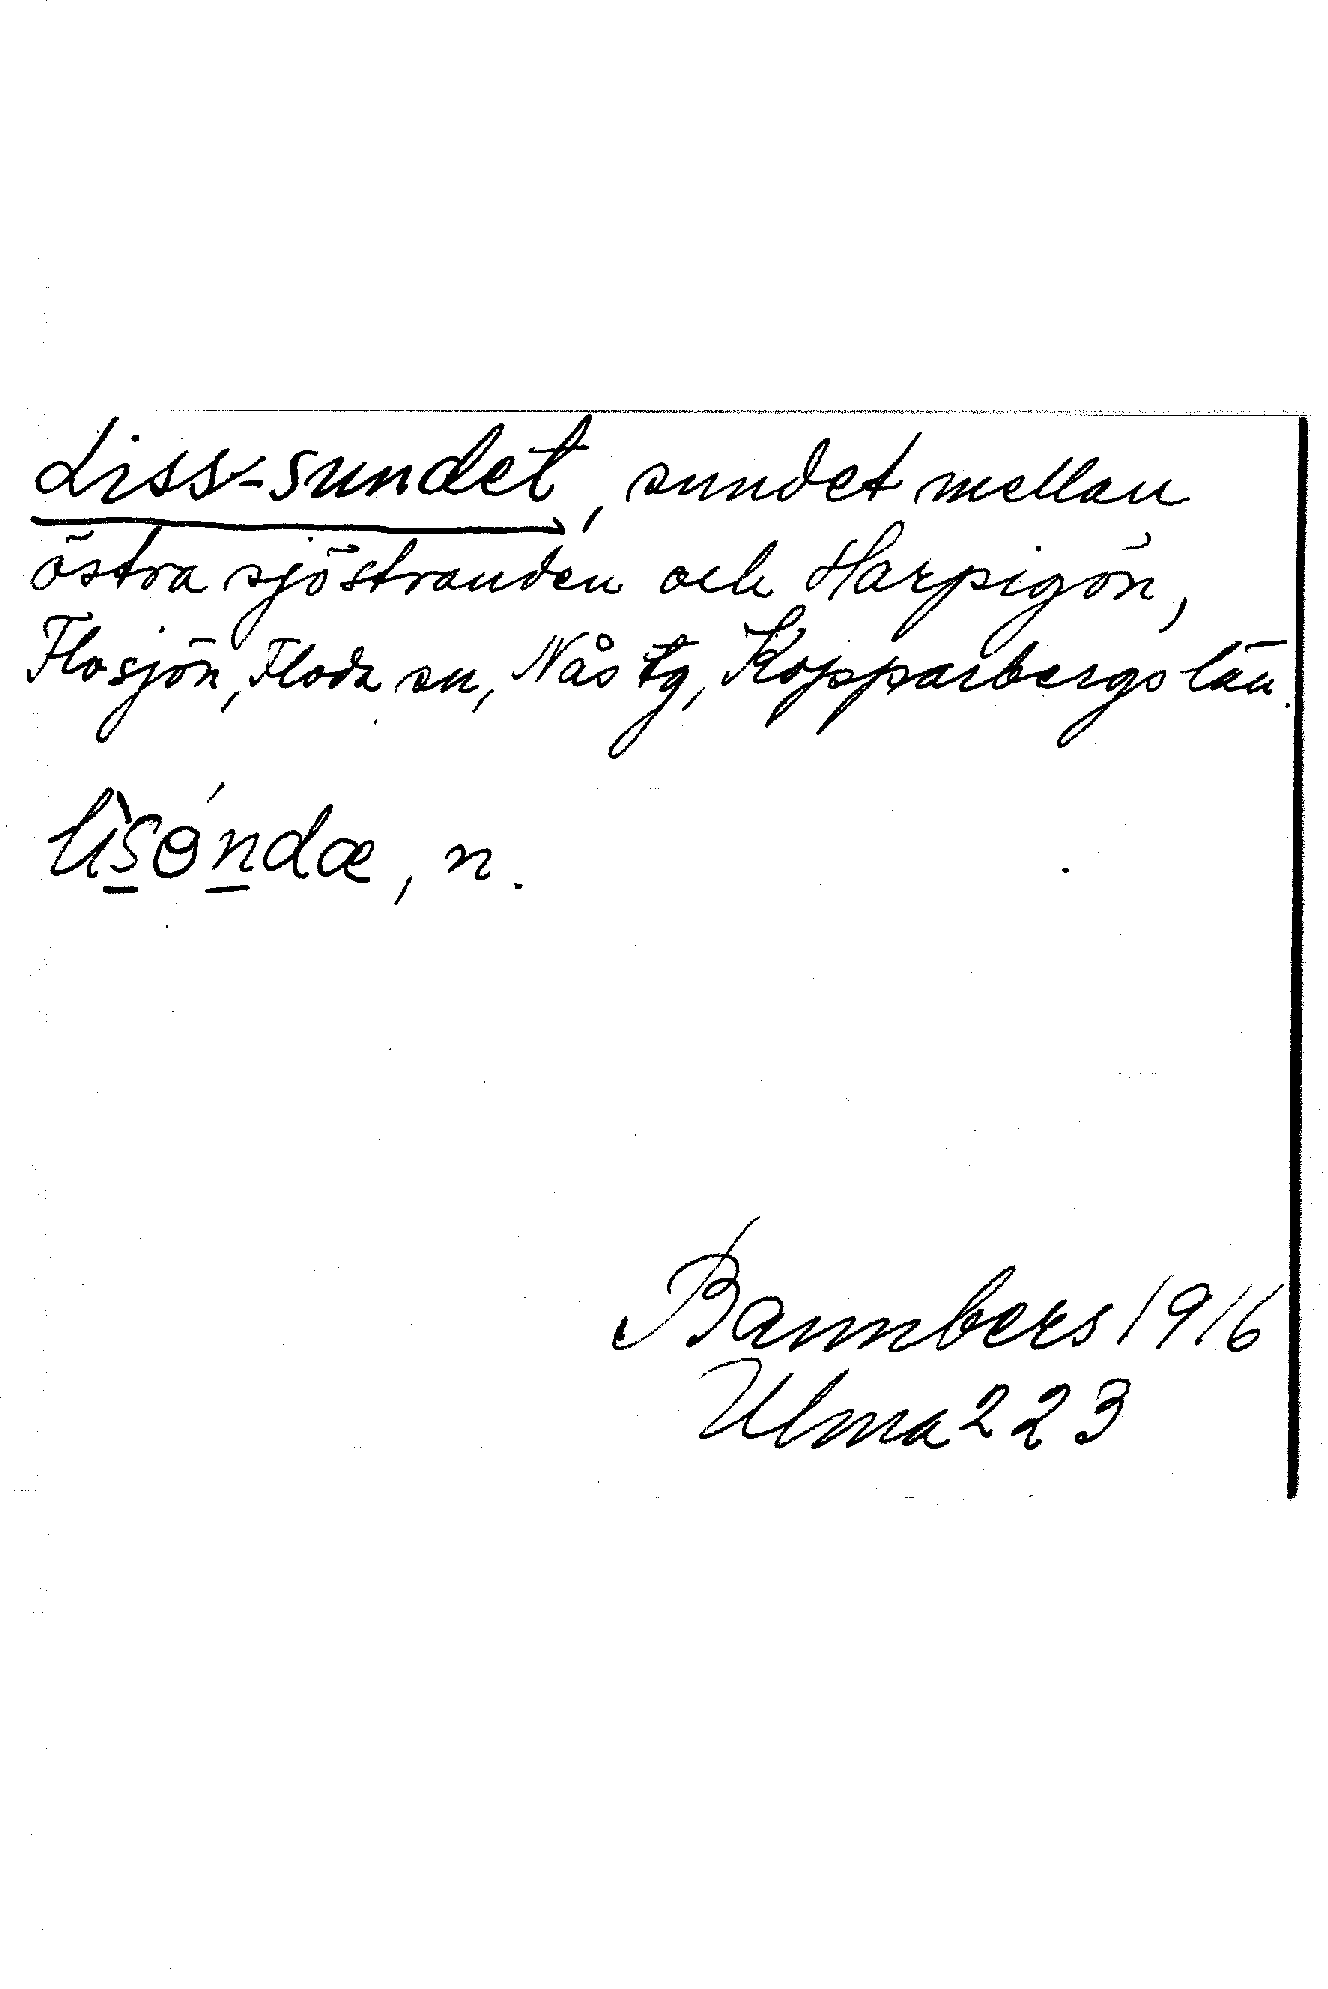 Liss-sundet, sundet mellan
östra sjöstranden och Harpigön,
Flosjön, Floda sn, Nås tg, Kopparbergs län.
lìsɵ́ndæ, n.
Bannbers 1916
Ulma 223